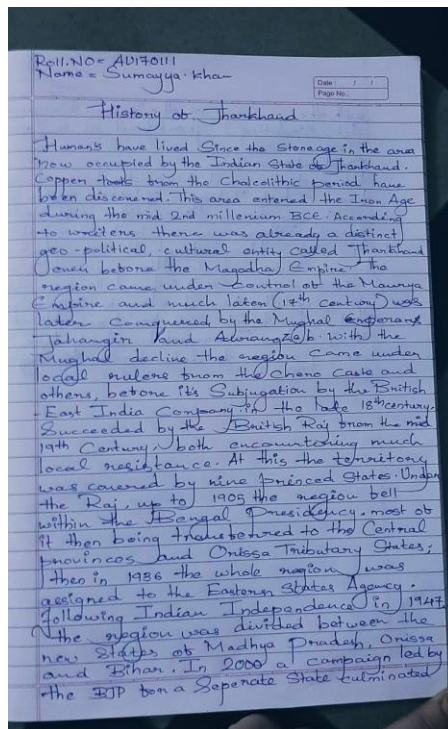 Roll.NO= AU170111
Name = Sumayya.khan
Date : / /
Page No.:
History of Jharkhand
Human's have lived Since the Stone age in the area
now occupied by the Indian State of Jharkhand.
Copper tools from the Chalcolithic period have
been discovered. This area entered the Iron Age
during the mid 2nd millenium BCE. According
to writers there was already a distinct
geo-political, cultural entity called Jharkhand
even before the Magadha Empire the
region came under Control of the Maurya
Empire and much later (17th Century) was
later Conquered by the Mughal emperors
Jahangir and Aurangzeb. with the
Mughal decline the region Came under
local rulers from the Chero Caste and
others, before it's Subjugation by the British
East India Company in the late 18th century.
Succeeded by the British Raj from the mid
19th Century, both encountering much
local resistance. At this the territory
was covered by nine princed States. Under
the Raj, up to 1905 the region fell
within the Bengal Presidency. most of
it then being transferred to the Central
provinces and Orissa Tributary States;
then in 1936 the whole region was
assigned to the Eastern States Agency.
following Indian Independence in 1947
the region was divided between the
new States of Madhya Pradesh, Orissa
and Bihar. In 2000 a campaign led by
the BJP for a Seperate State culminated